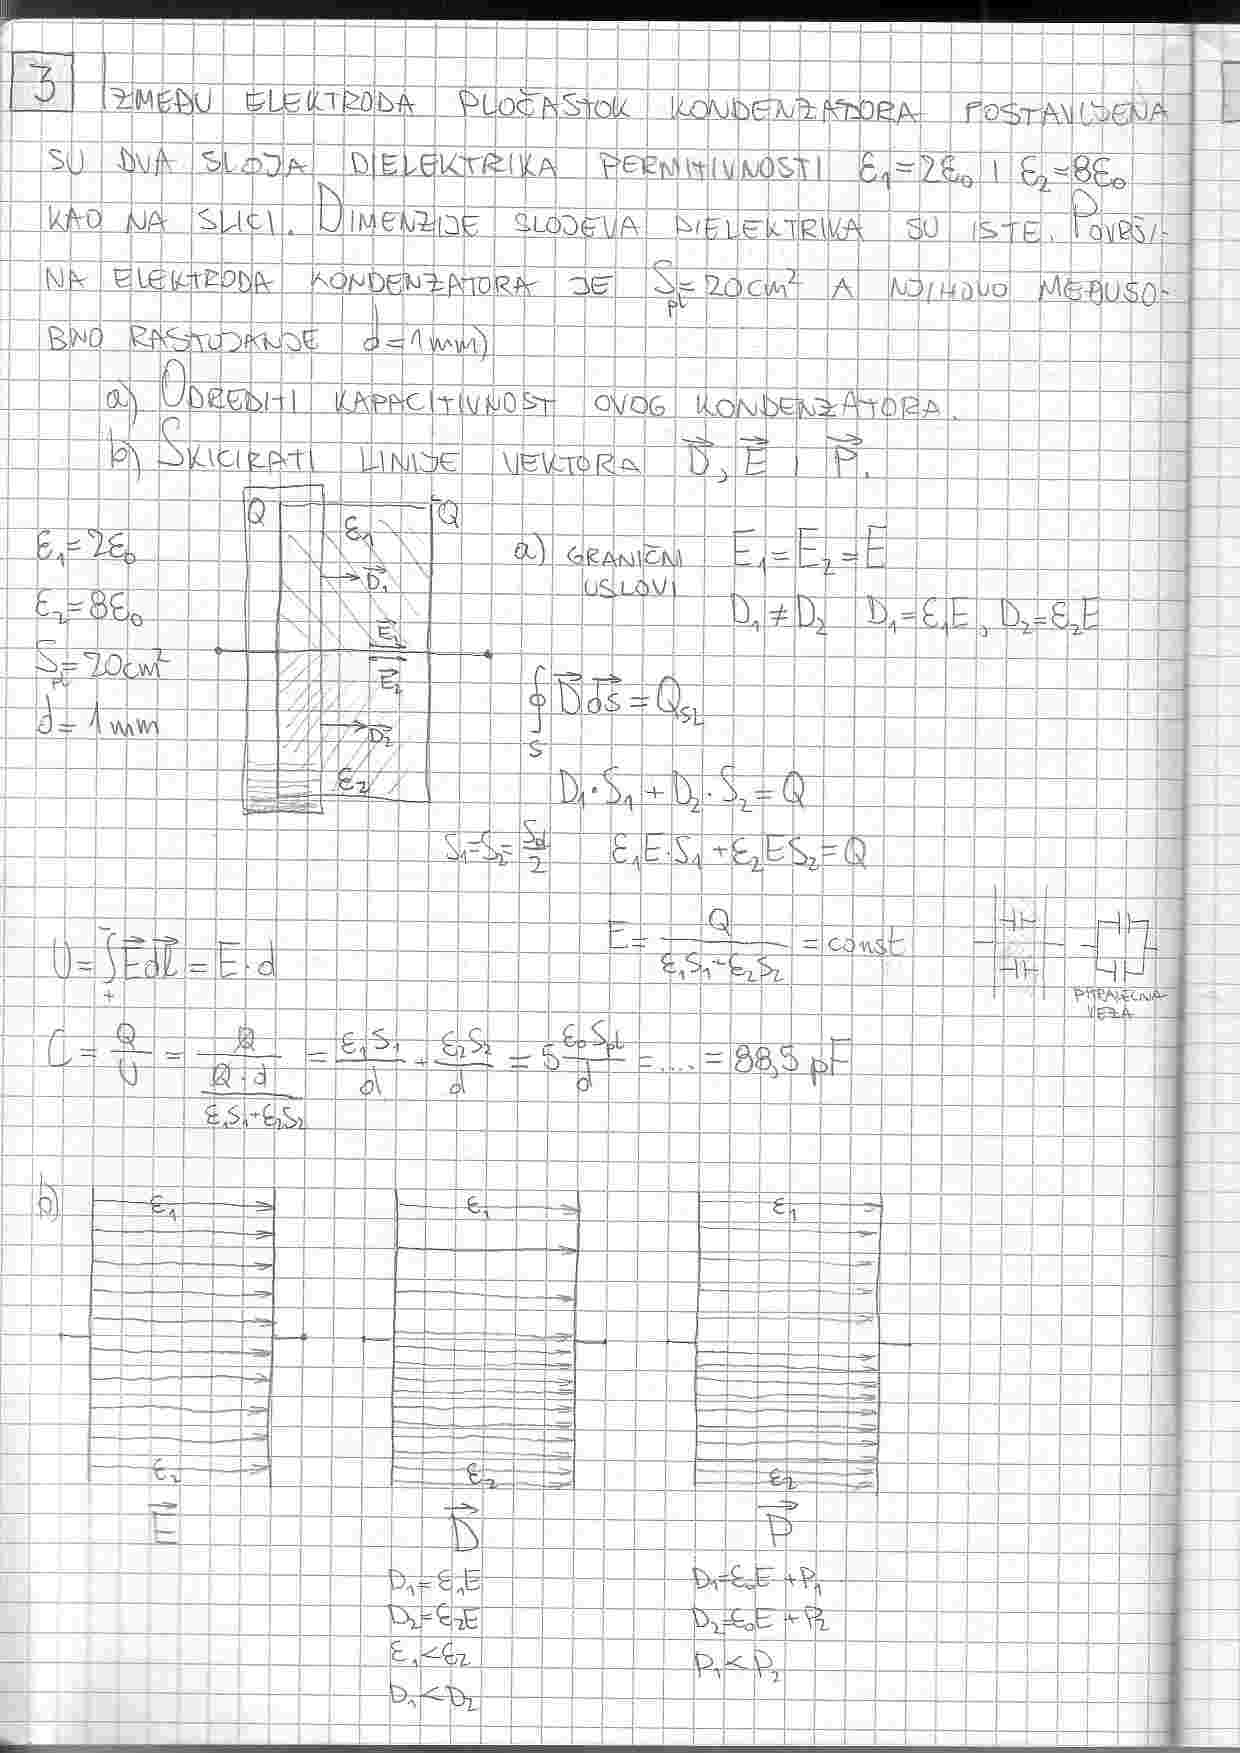 3 IZMEĐU ELEKTRODA PLOČASTOK KONDENZATORA POSTAVLJENA
SU DVA SLOJA DIELEKTRIKA PERMITIVNOSTI ε₁=2ε₀ I ε₂=8ε₀
KAO NA SLICI. DIMENZIJE SLOJEVA DIELEKTRIKA SU ISTE. POVRŠI-
NA ELEKTRODA KONDENZATORA JE S_pl=20cm² A NJIHOVO MEĐUSO-
BNO RASTOJANJE d=1mm)
a) ODREDITI KAPACITIVNOST OVOG KONDENZATORA.
b) SKICIRATI LINIJE VEKTORA D⃗, E⃗ I P⃗.
Q ε₁ -Q
ε₁=2ε₀
ε₂=8ε₀
S_pl=20cm²
d=1mm
D⃗₁
E⃗₂
E⃗₂
D⃗₂
ε₂
a) GRANIČNI USLOVI E₁=E₂=E
D₁≠D₂ D₁=ε₁E, D₂=ε₂E
∮_S D⃗ds⃗=Q_SL
D₁·S₁+D₂·S₂=Q
S₁=S₂=S_d/2 ε₁E·S₁+ε₂ES₂=Q
U=∫₊⁻E⃗dl⃗=E·d E=Q/(ε₁S₁+ε₂S₂)=const
VEZA
C=Q/U=Q/(Q·d/(ε₁S₁+ε₂S₂))=ε₁S₁/d+ε₂S₂/d=5 ε₀S_pl/d=....=88,5pF
b) ε₁ ε₁ ε₁
ε₂ ε₂ ε₂
E⃗ D⃗ P⃗
D₁=ε₁E D₁=ε₀E+P₁
D₂=ε₂E D₂=ε₀E+P₂
ε₁<ε₂ P₁<P₂
D₁<D₂